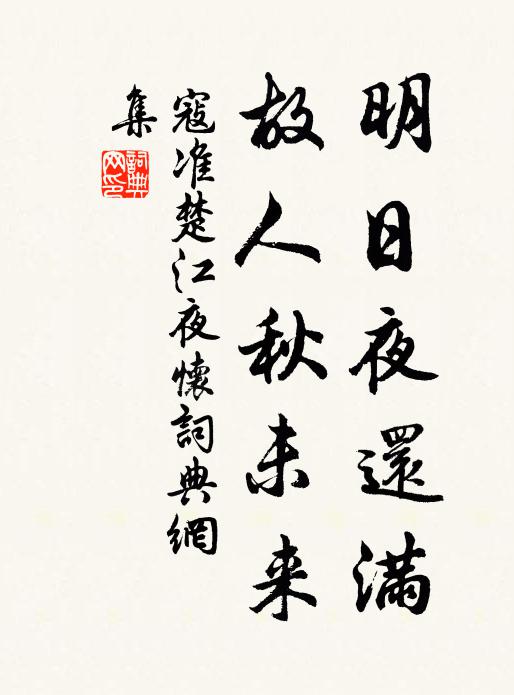 明日夜還滿
故人秋未来
寇准楚江夜懷詞典網
集
詞典
网印